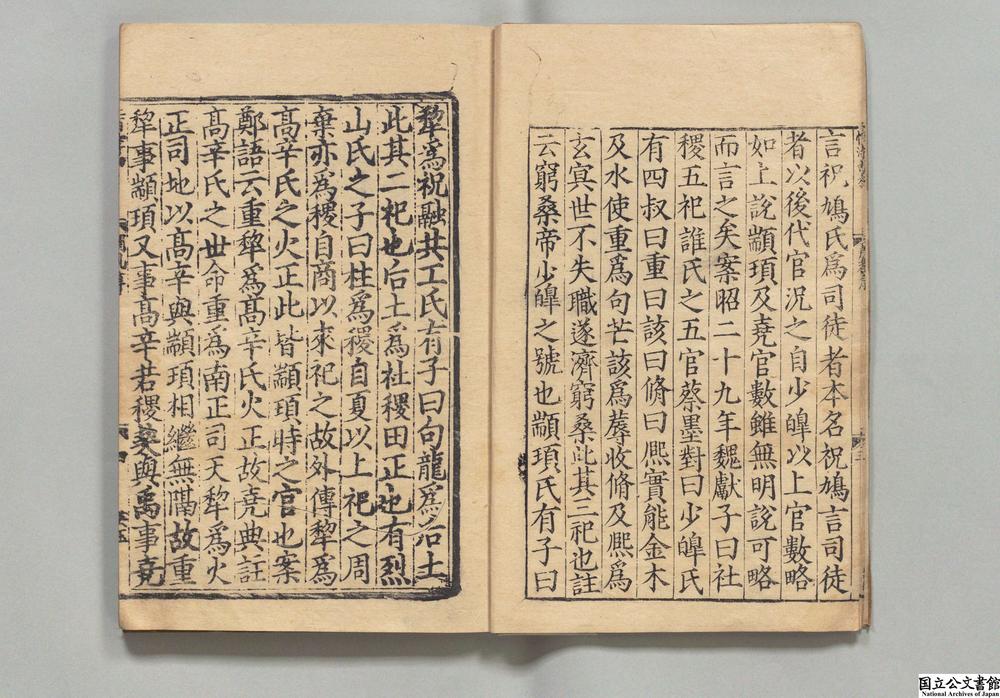 言祝鳩氏爲司徒者本名祝鳩言司徒
者以後代官況之自少皥以上官數略
如上說顓頊及堯官數雖無明說可略
而言之矣案昭二十九年魏獻子曰社
稷五祀誰氏之五官蔡墨對曰少皥氏
有四叔曰重曰該曰脩曰熈實能金木
及水使重爲句芒該爲蓐收脩及熈爲
玄冥世不失職遂濟窮桑此其三祀也註
云窮桑帝少皥之號也顓頊氏有子曰
犂爲祝融共工氏有子曰句龍爲后土
此其二祀也后土爲社稷田正也有烈
山氏之子曰柱爲稷自夏以上祀之周
棄亦爲稷自商以來祀之故外傳犂爲
高辛氏之火正此皆顓頊時之官也案
鄭語云重犂爲高辛氏火正故堯典註
高辛氏之世命重爲南正司天犂爲火
正司地以高辛與顓頊相繼無隔故重
犂事顓頊又事高辛若稷契與禹事堯
国立公文書館
National Archives of Japan